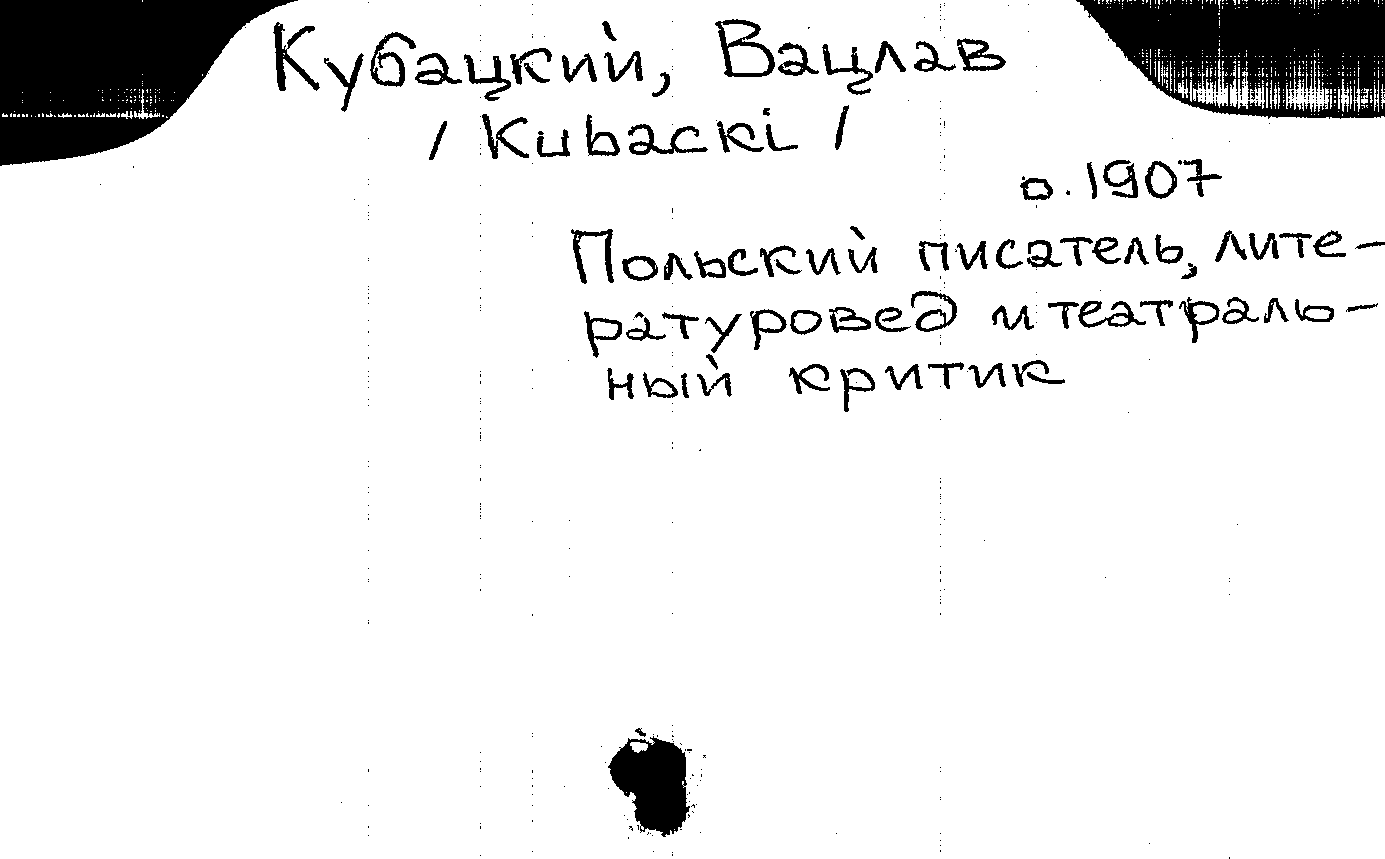 Кубацкий, Вацлав
/ Kubacki /
р. 1907
Польский писатель, лите-
ратуровед и театраль-
ный критик